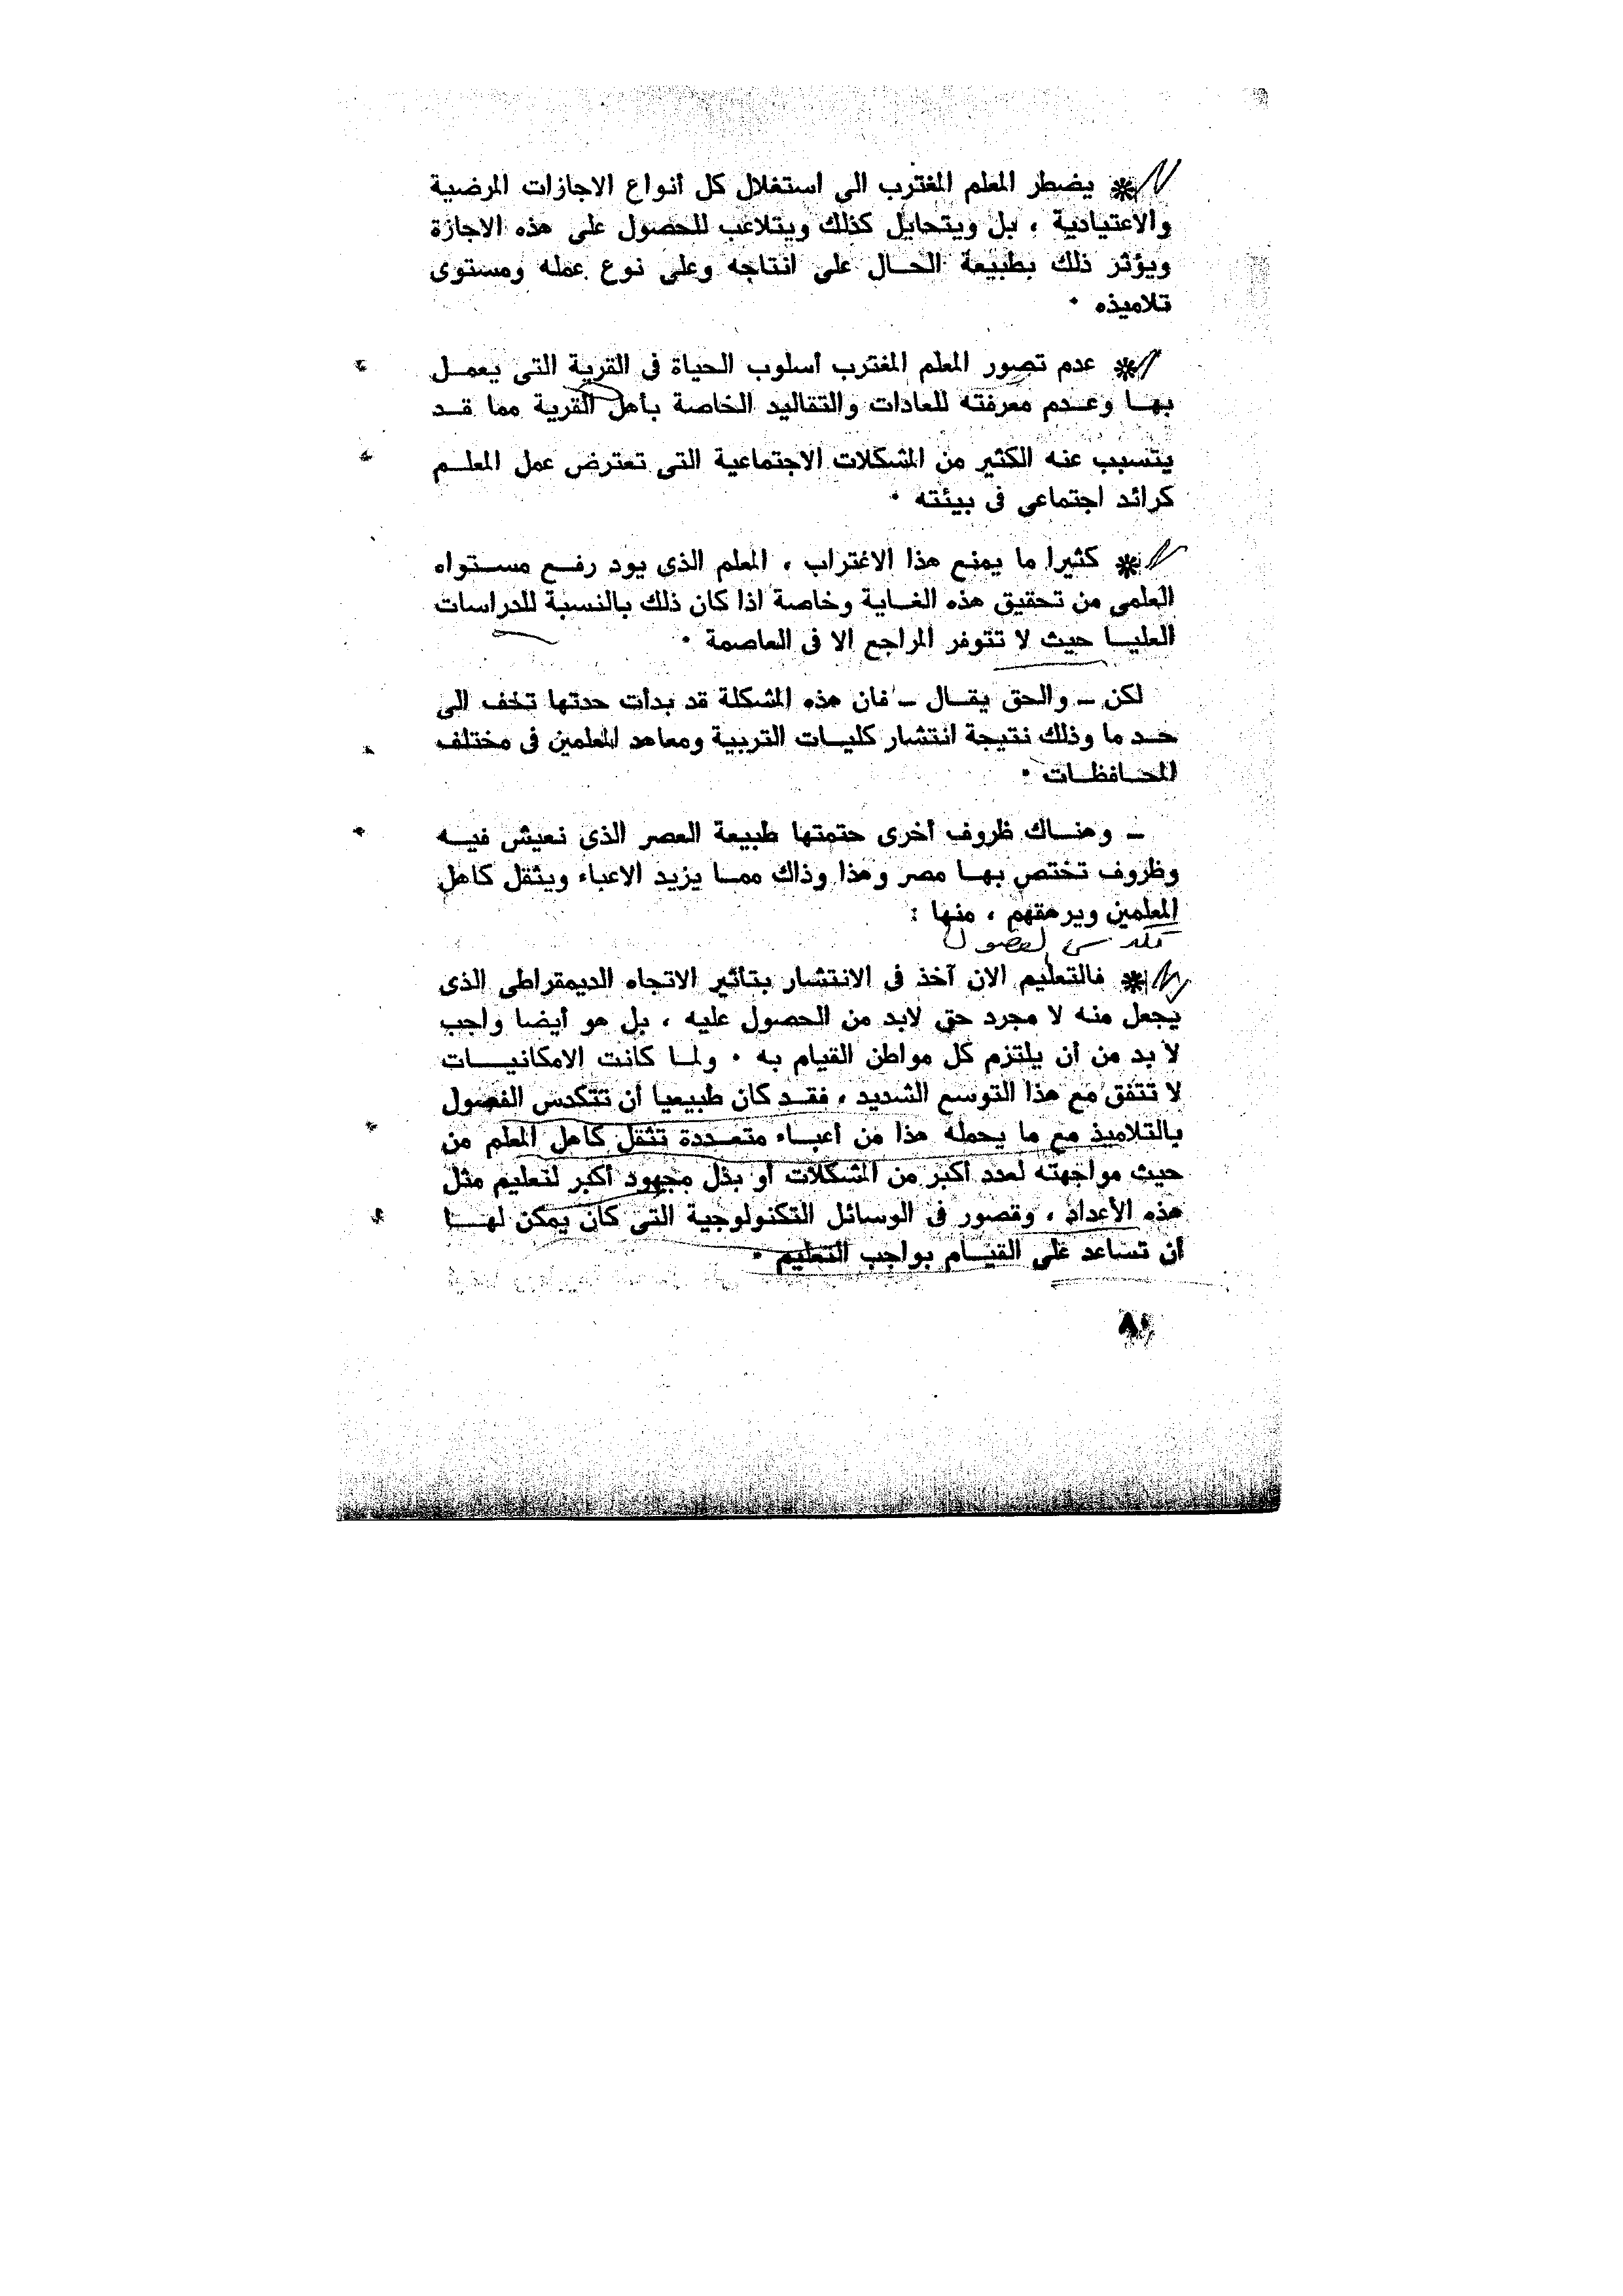 * يضطر المعلم المغترب الى استغلال كل أنواع الاجازات المرضية
والاعتيادية ، بل ويتحايل كذلك ويتلاعب للحصول على هذه الاجازة
ويؤثر ذلك بطبيعة الحـال على انتاجه وعلى نوع عمله ومستوى
تلاميذه ٠
* عدم تصور المعلم المغترب أسلوب الحياة فى القرية التى يعمـل
بهـا وعـدم معرفته للعادات والتقاليد الخاصة بأهل القرية مما قـد
يتسبب عنه الكثير من المشكلات الاجتماعية التى تعترض عمل المعلـم
كرائد اجتماعى فى بيئته ٠
* كثيرا ما يمنع هذا الاغتراب ، المعلم الذى يود رفـع مسـتواه
العلمى من تحقيق هذه الغـاية وخاصة اذا كان ذلك بالنسبة للدراسات
العليـا حيث لا تتوفر المراجع الا فى العاصمة ٠
لكن ـ والحق يقـال ـ فان هذه المشكلة قد بدأت حدتها تخف الى
حـد ما وذلك نتيجة انتشار كليـات التربية ومعاهد المعلمين فى مختلف
المحـافظـات ٠
ـ وهنـاك ظروف أخرى حتمتها طبيعة العصر الذى نعيش فيـه
وظروف تختص بهـا مصر وهذا وذاك ممـا يزيد الاعباء ويثقل كاهل
المعلمين ويرهقهم ، منها :
* فالتعليم الان آخذ فى الانتشار بتأثير الاتجاه الديمقراطى الذى
يجعل منه لا مجرد حق لابد من الحصول عليه ، بل هو أيضا واجب
لا بد من أن يلتزم كل مواطن القيام به ٠ ولمـا كانت الامكانيـات
لا تتفق مع هذا التوسع الشديد ، فقـد كان طبيعيا أن تتكدس الفصول
بالتلاميذ مع ما يحمله هذا من أعبـاء متعـددة تثقل كاهل المعلم من
حيث مواجهته لعدد أكبر من المشكلات أو بذل مجهود أكبر لتعليم مثل
هذه الأعداد ، وقصور فى الوسائل التكنولوجية التى كان يمكن لهـا
أن تساعد على القيـام بواجب التعليم ٠